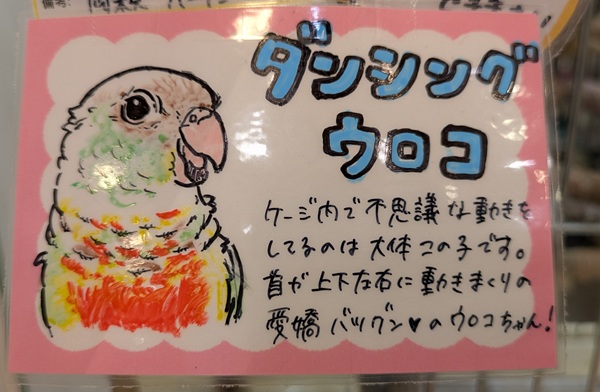 備考:
ダンシング
ウロコ
ケージ内で不思議な動きを
してるのは大体この子です。
首が上下左右に動きまくりの
愛嬌バツグン♥のウロコちゃん!